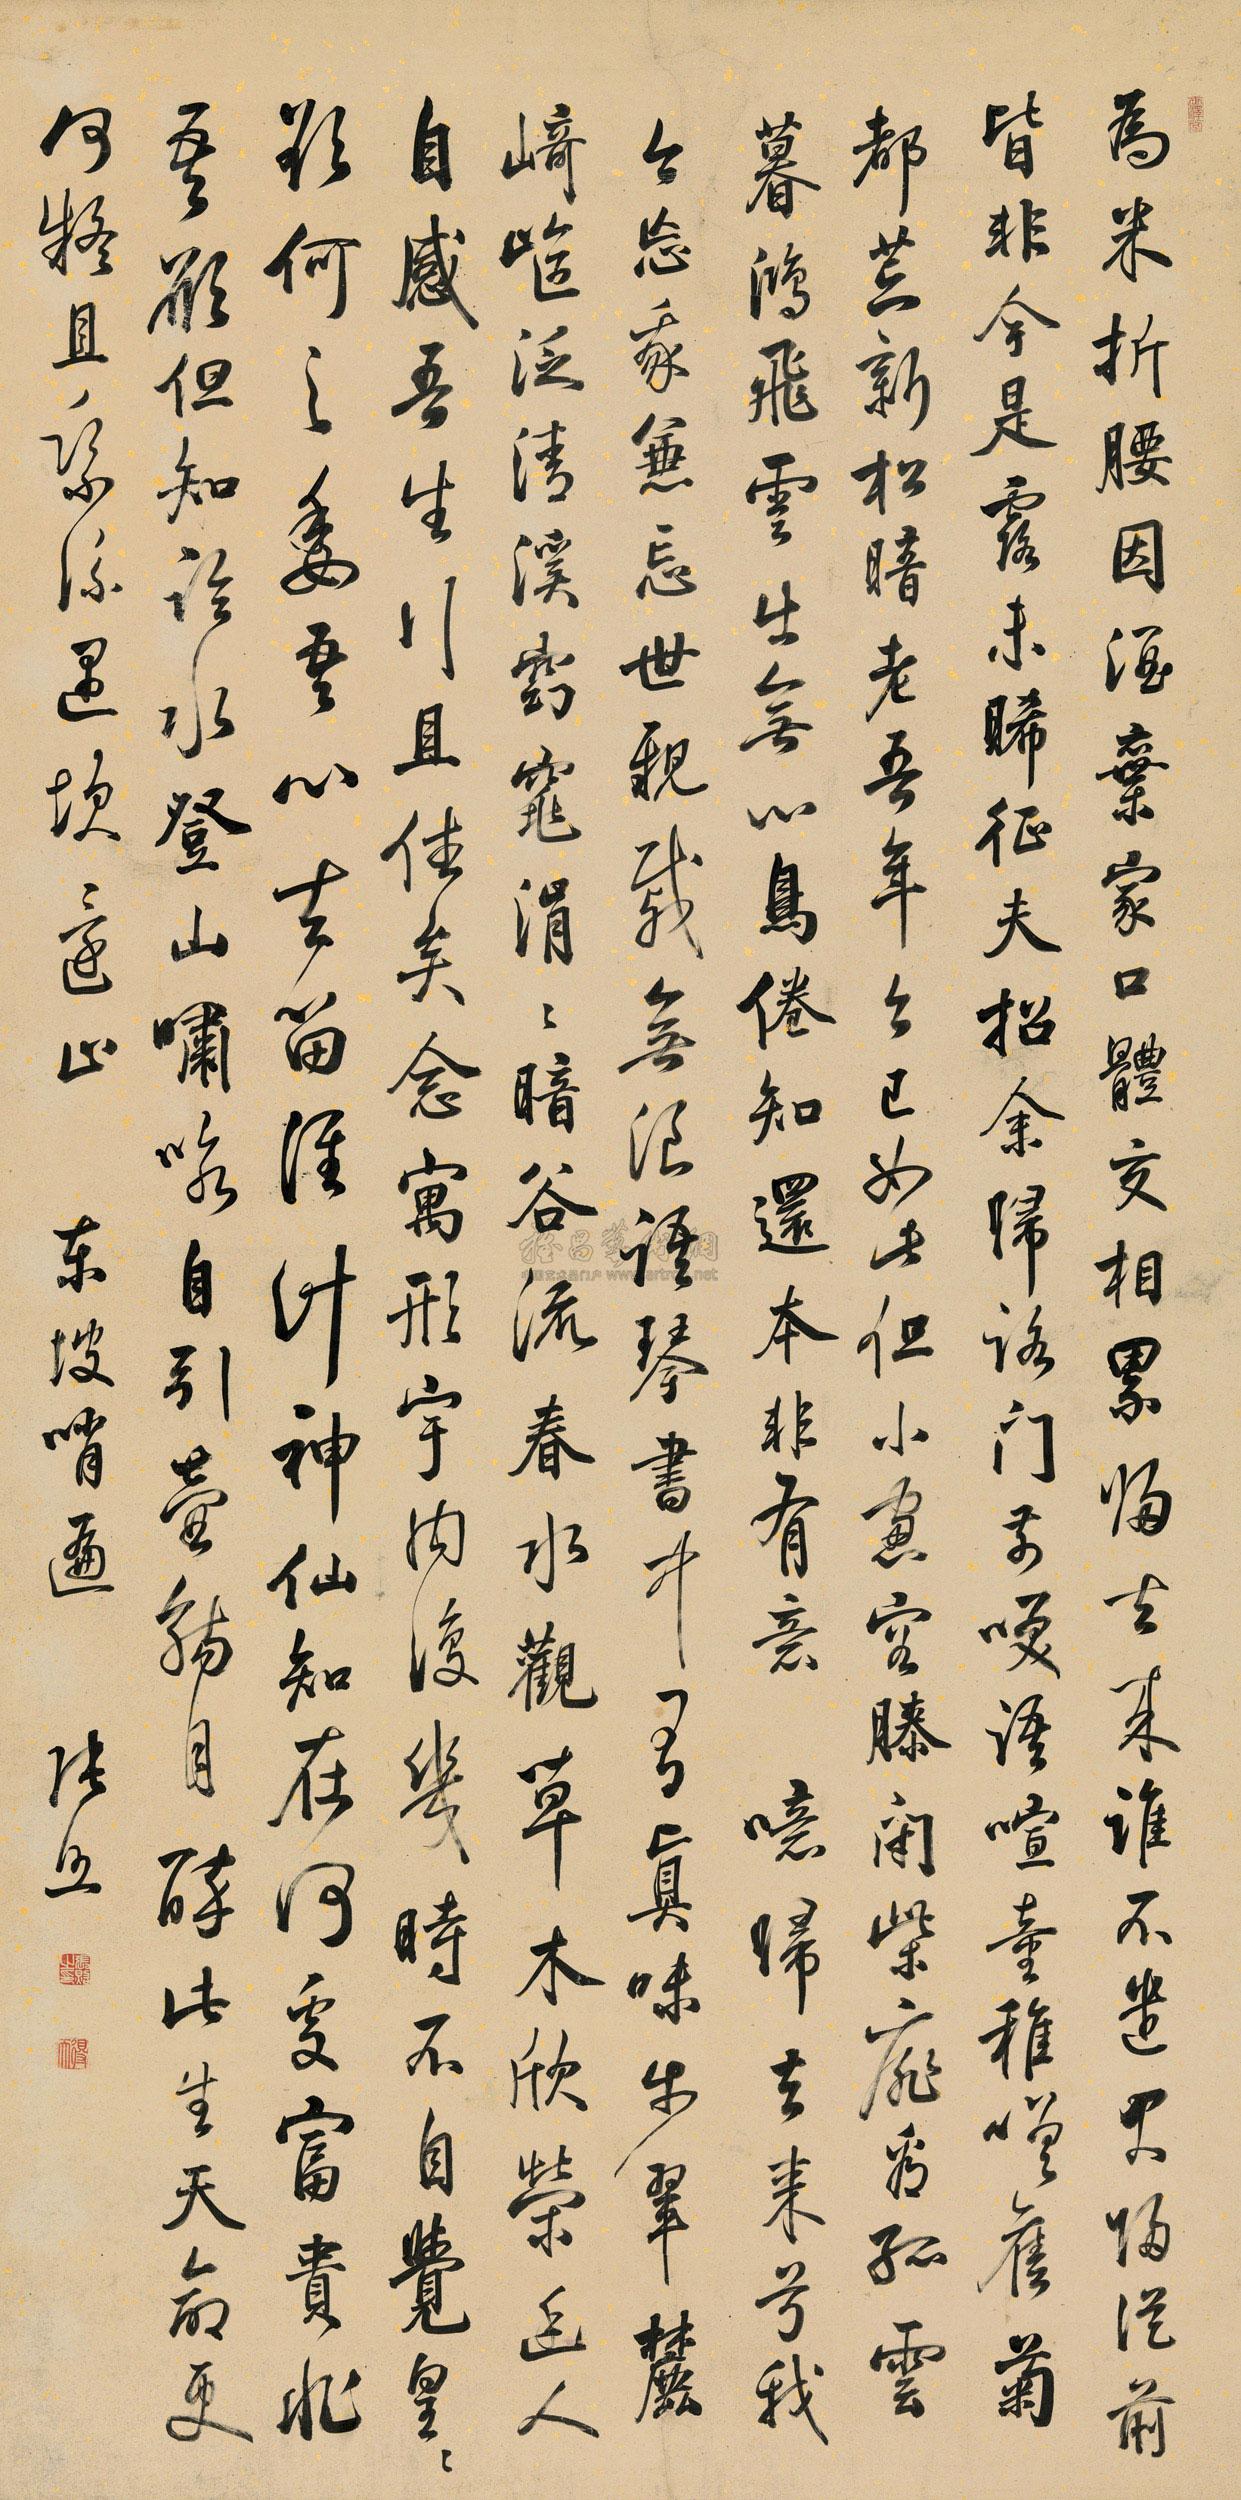 為米折腰因酒棄家口體交相累歸去來誰不遣君歸從前
皆非今是露未晞征夫指余歸路門前笑語喧童稚嗟舊菊
都荒新松暗老吾年今已如此但小窗容膝閉柴扉看孤雲
暮鴻飛雲出無心鳥倦知還本非有意 噫歸去來兮我
今忘我兼忘世親戚無浪語琴書中有真味步翠麓
崎嶇泛清溪窈窕涓涓暗谷流春水觀草木欣榮幽人
自感吾生行且休矣念寓形宇內復幾時不自覺皇皇
欲何之委吾心去留誰計神仙知在何處富貴非
吾願但知臨水登山嘯詠自引壺觴自醉此生天命更
何疑且乘流遇坎還止 東坡哨遍 張照